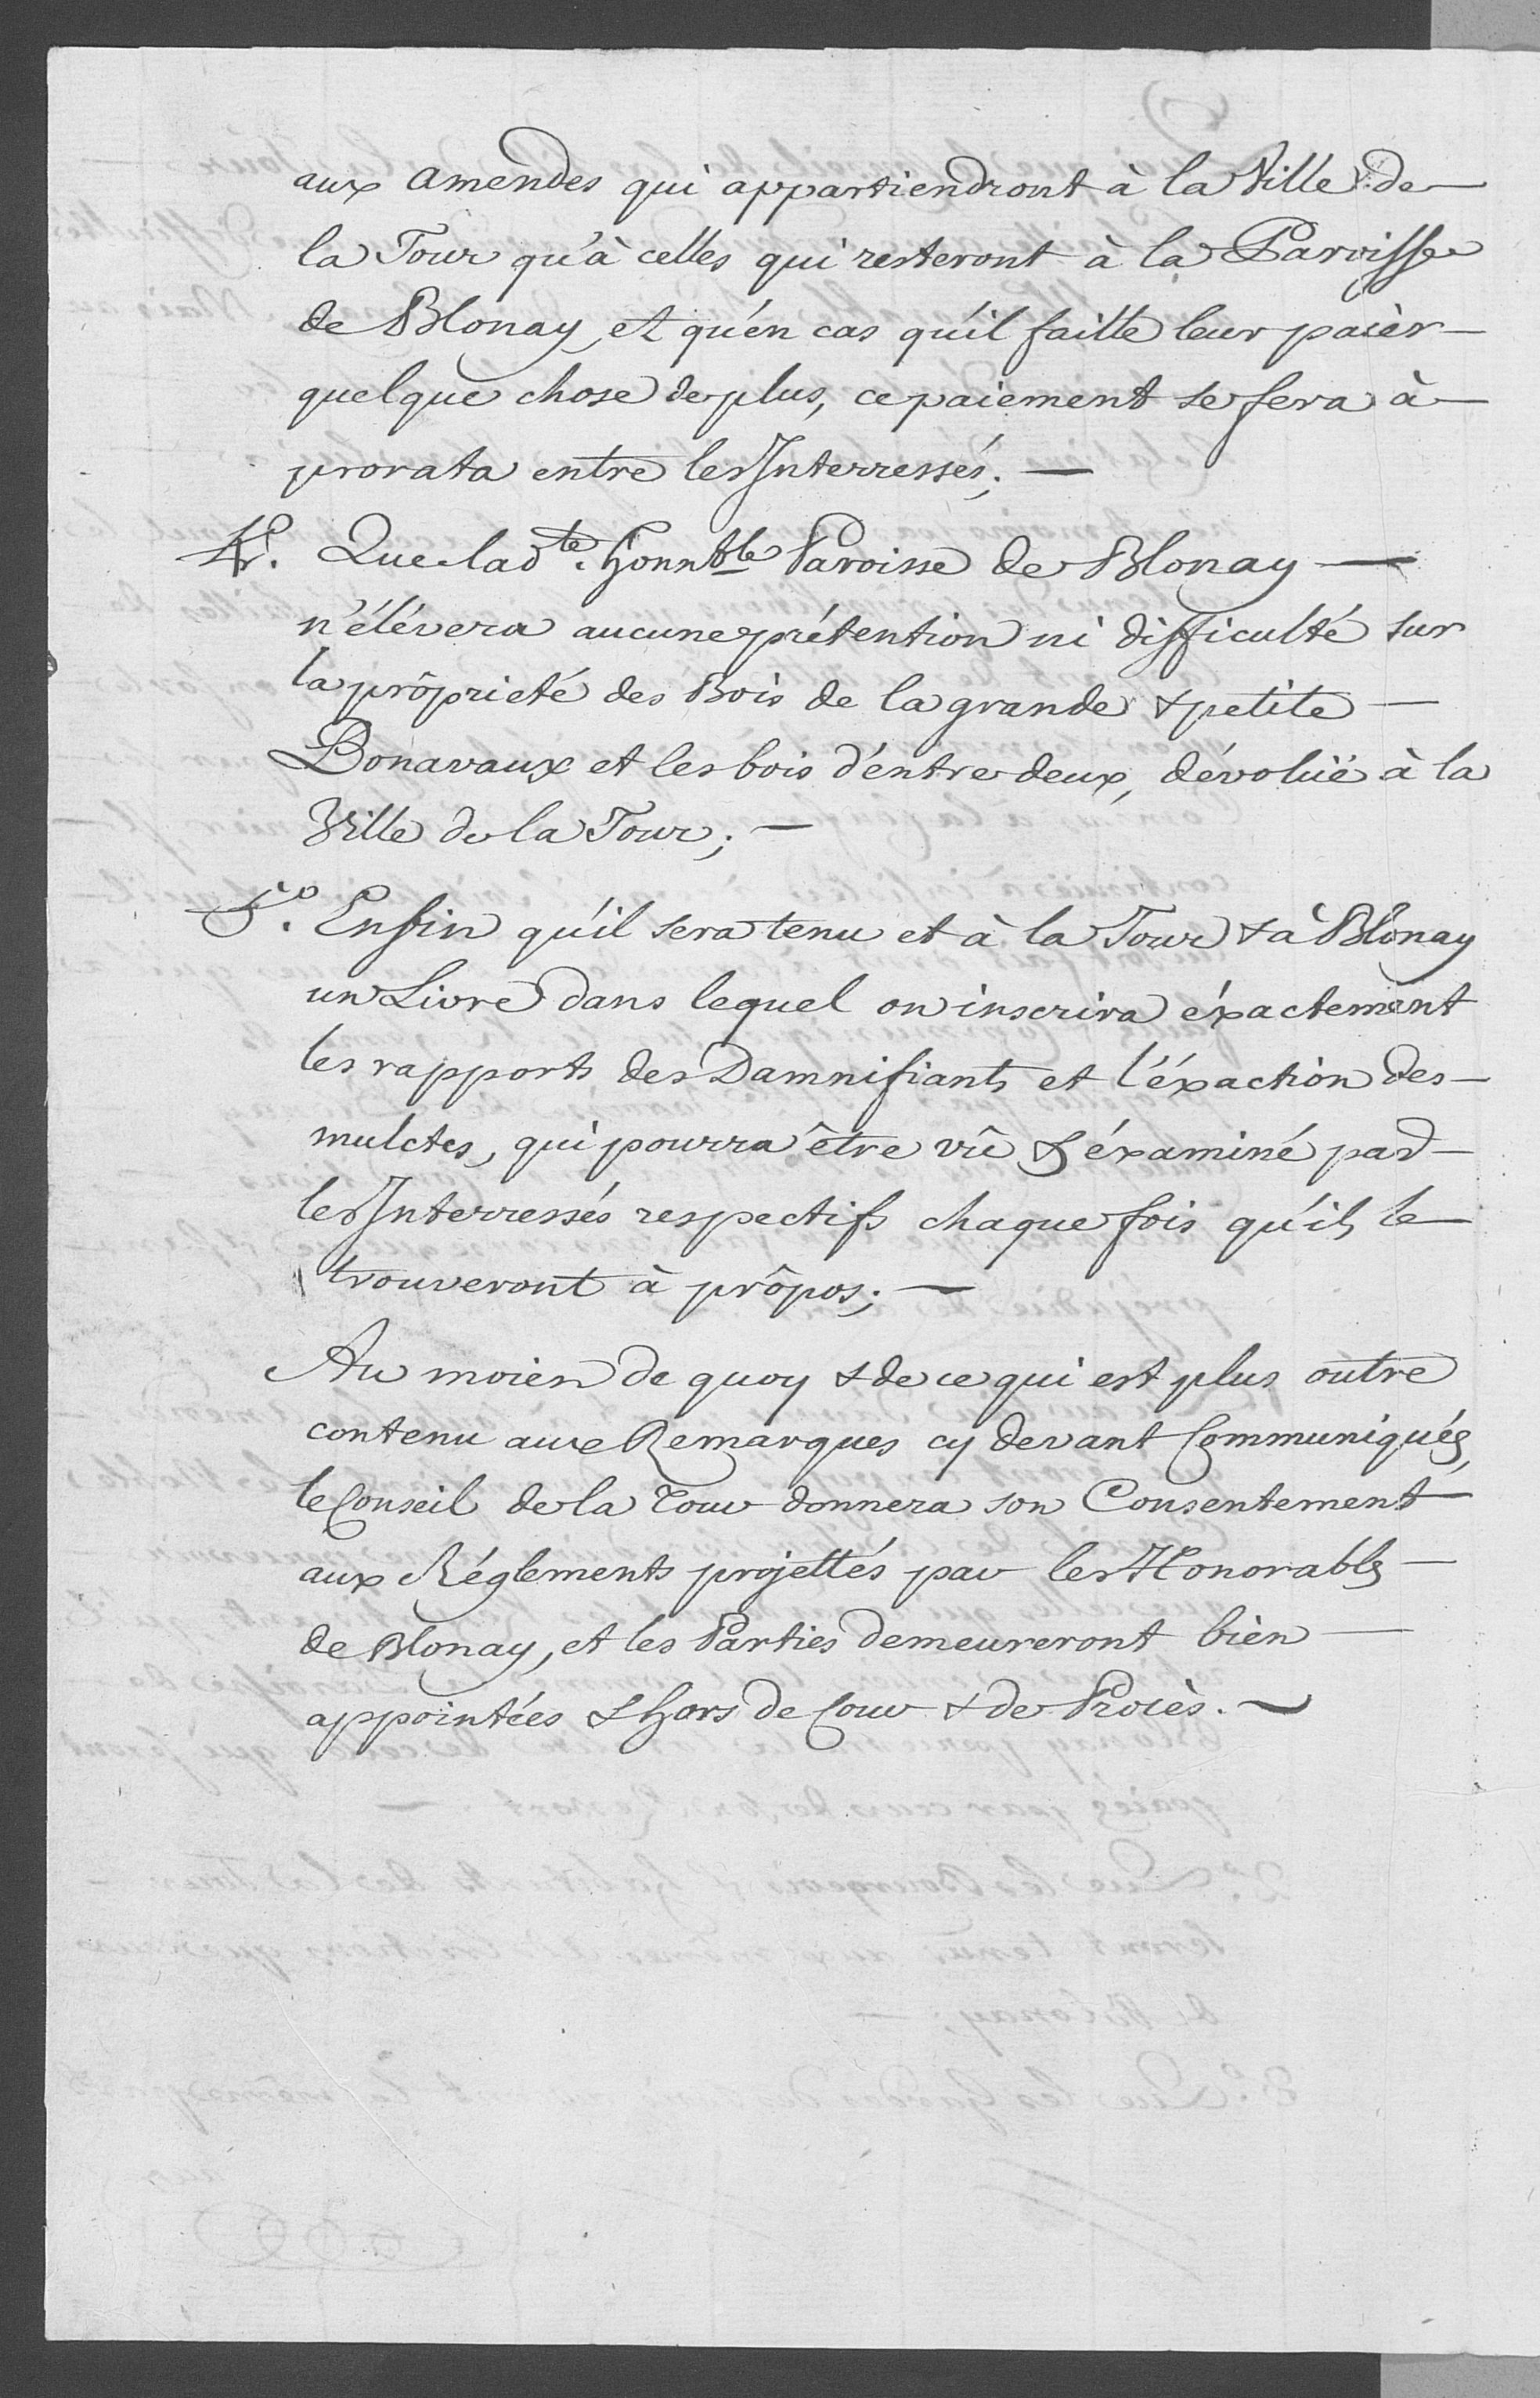 aux amendes qui appartiendront à la Ville de —
la Tour qu'à celles qui resteront à la Paroisse
de Blonay, et qu'én cas qu'il faille leur païer —
quelque chose de plus, ce paiement se fera à —
prorata entre les Interressés; —
4º. Que lad.te honnble Paroisse de Blonay —
n'élévera aucune prétention ni difficulté sur
la prôprieté des Bois de la grande & petite —
Bonavaux et les bois d'éntre deux, dévoluë à la
Ville de la Tour; —
5º. Enfin qu'il sera tenu et à la Tour & à Blonay
un Livre dans lequel on inscrira éxactement
les rapports des Damnifiants et l'éxaction des —
mulctes, qui pourra être vû & éxaminé par —
les Interressés respectifs chaque fois qu'ils le —
trouveront à prôpos; —
Au moien de quoy & de ce qui est plus outre
contenu aux Remarques cy devant Communiqués,
le Conseil de la Tour donnera son Consentement
aux Réglements projettés par les Honorables —
de Blonay, et les Parties demeureront bien —
appointées & hors de Cour & de Procès. —